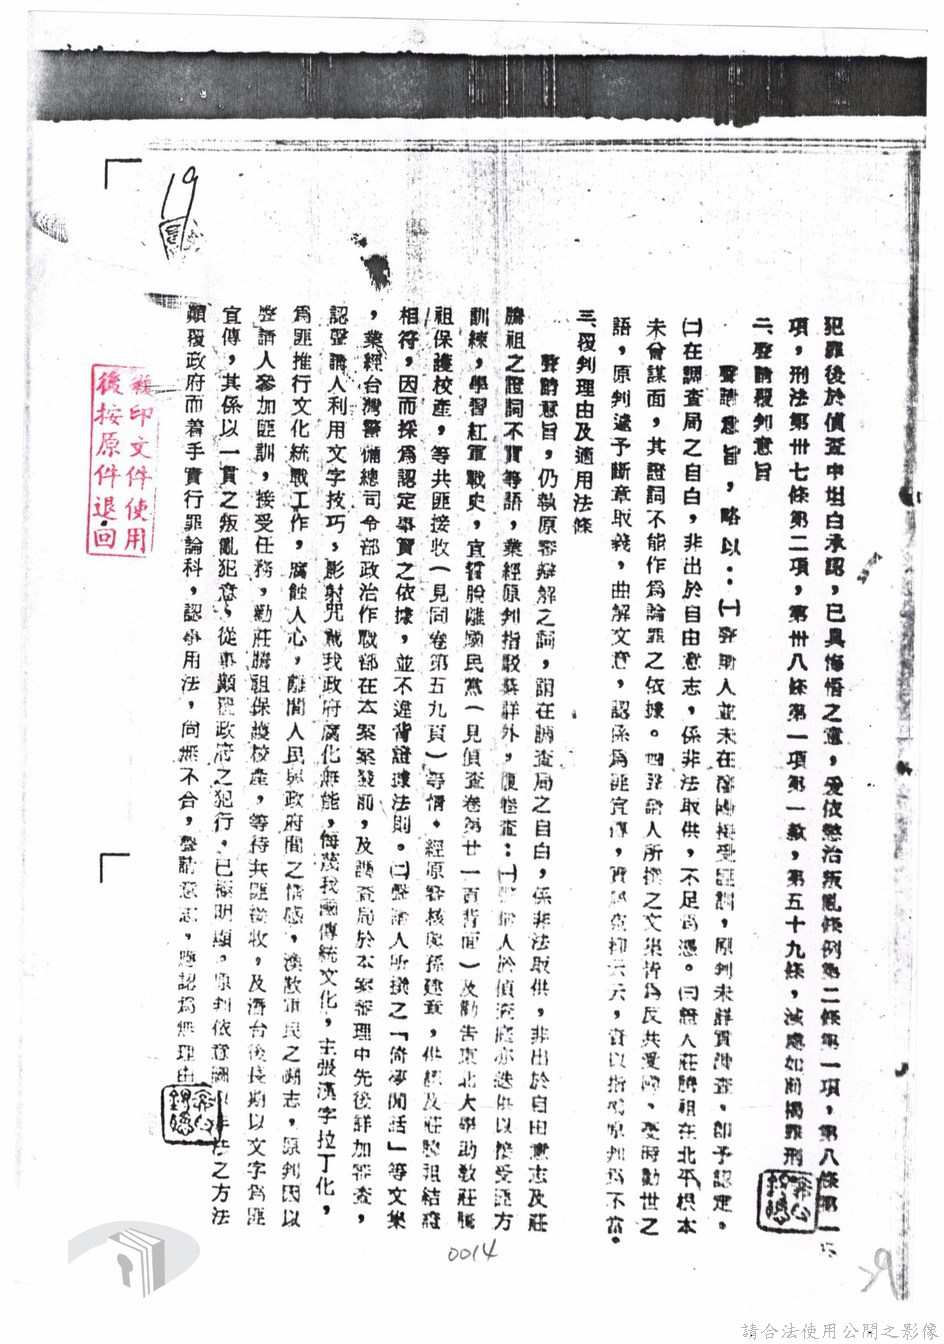 犯罪後於偵查中坦白承認，已具悔悟之意，爰依懲治叛亂條例第二條第一項，第八條第一
項，刑法第卅七條第二項，第卅八條第一項第一款，第五十九條，減處如前揭罪刑
二、聲請覆判意旨
聲請意旨，略以：㈠聲請人並未在瀋陽接受匪訓，原判未詳實調查，即予認定。
㈡在調查局之自白，非出於自由意志，係非法取供，不足為憑。㈢證人莊騰祖在北平根本
未曾謀面，其證詞不能作為論罪之依據。㈣聲請人所撰之文集皆為反共愛國、憂時勸世之
語，原判遽予斷章取義，曲解文意，認係為匪宣傳，云云，資以指摘原判為不當。
三、覆判理由及適用法條
聲請意旨，仍執原審辯解之詞，謂在調查局之自白，係非法取供，非出於自由意志及莊
騰祖之證詞不實等語，業經原判指駁綦詳外，復卷查：㈠聲請人於偵查庭亦迭供以接受匪方
訓練，學習紅軍戰史，宣誓脫離國民黨（見偵查卷第廿一頁背面）及勸告東北大學助教莊騰
祖保護校產，等共匪接收（見同卷第五九頁）等情。經原審核與孫建章，供述及莊騰祖結證
相符，因而採為認定事實之依據，並不違背證據法則。㈡聲請人所撰之「倚夢閒話」等文集
，業經台灣警備總司令部政治作戰部在本案案發前，及調查局於本案審理中先後詳加審查，
認聲請人利用文字技巧，影射咒罵我政府腐化無能，侮蔑我國傳統文化，主張漢字拉丁化，
為匪推行文化統戰工作，腐蝕人心，離間人民與政府間之情感，渙散軍民之鬥志，原判因以
聲請人參加匪訓，接受任務，勸莊騰祖保護校產，等待共匪接收，及濟台後長期以文字為匪
宣傳，其係以一貫之叛亂犯意，從事顛覆政府之犯行，已極明顯，原判依意圖以非法之方法
顛覆政府而着手實行罪論科，認事用法，尚無不合，聲請意旨，應認為無理由
複印文件使用
後按原件退回
19
0014
請合法使用公開之影像